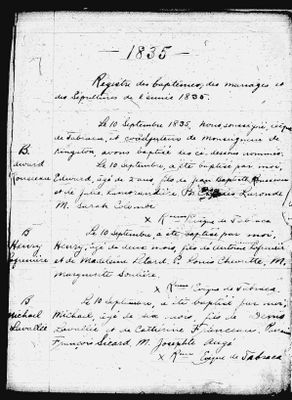 — 1835 —
Registre des baptêmes, des mariages et
des Sépultures de l'année 1835.
Le 10 Septembre 1835, nous, soussigné, évêque
de Tabraca, et coadjuteur de Monseigneur de
Kingston, avons baptisé les ci-dessous nommés.
B Le 10 Septembre, a été baptisé par moi,
Edward Edward, âgé de 2 ans, fils de Jean Baptiste Rousseau
Rousseau et de Julie
M. Sarah Colombe
x Rémi Évêque de Tabraca
B Le 10 Septembre a été baptisé par moi,
Henry Henry, âgé de deux mois, fils de Antoine
et de Madeleine P. Louis M.
Marguerite
x Rémi Évêque de Tabraca.
B Le 10 Septembre, a été baptisé par moi,
Michael Michael, âgé de six mois, fils de Denis
Lavallée Lavallée et de Catherine
François Sicard, M. Josephte Augé
x Rémi Évêque de Tabraca